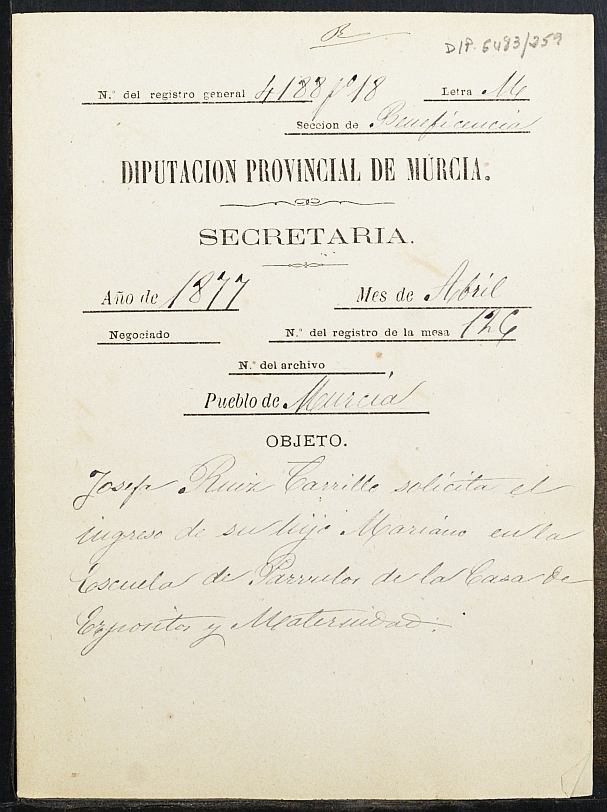 R
DIP. 6483/259
N.º del registro general 4188 fº 18 Letra M
Seccion de Beneficencia
DIPUTACION PROVINCIAL DE MURCIA.
SECRETARIA.
Año de 1877 Mes de Abril
Negociado N.º del registro de la mesa 126
N.º del archivo
Pueblo de Murcia
OBJETO.
Josefa Ruiz Carrillo solicita el
ingreso de su hijo Mariano en la
Escuela de Parvulos de la Casa de
Expositos y Maternidad.